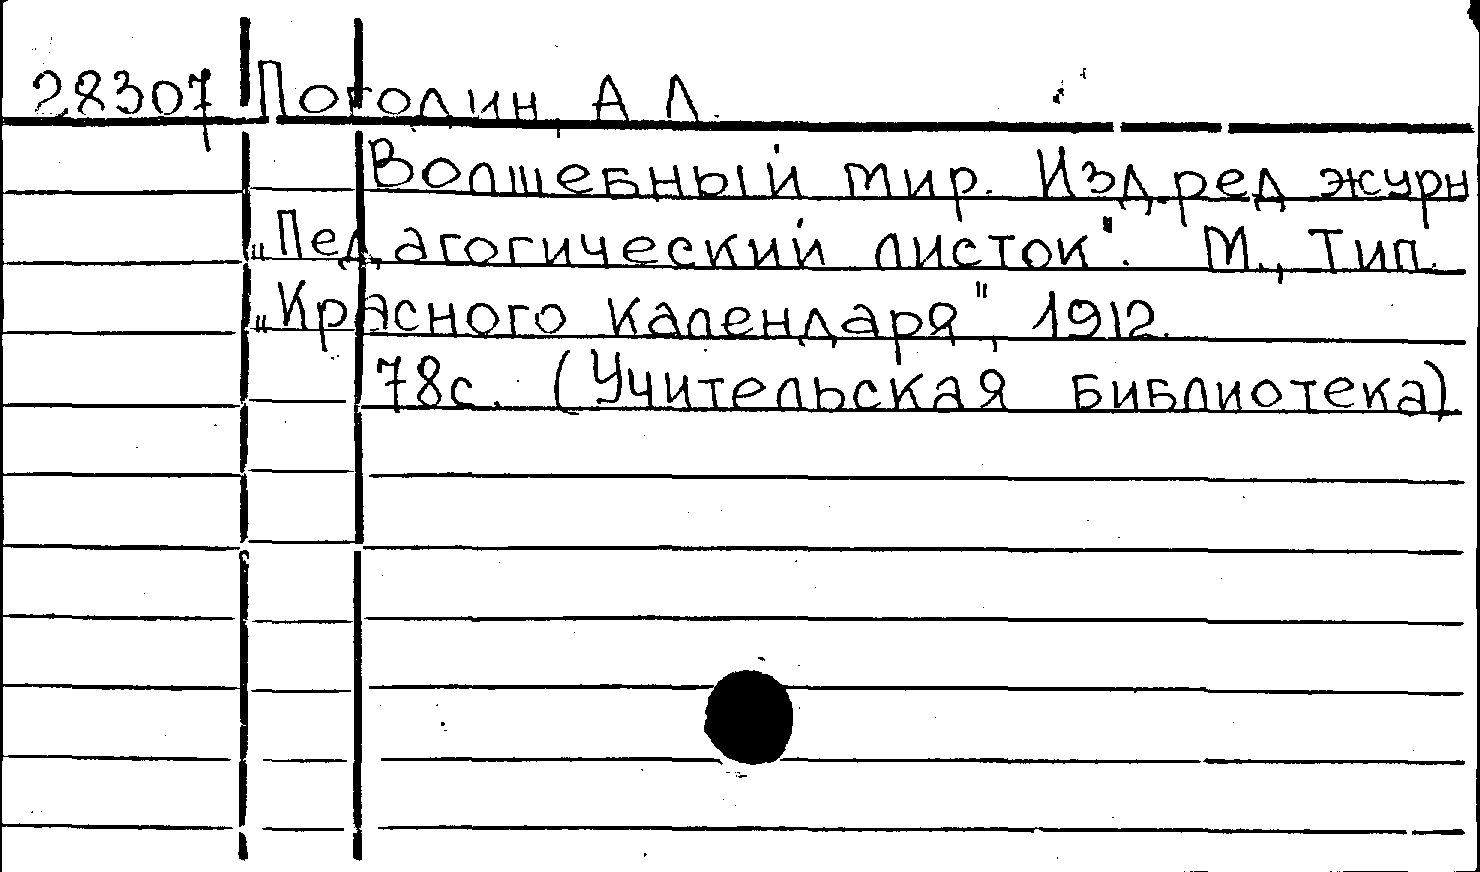 28307 Погодин, А Л.
Волшебный мир. Изд. ред журн
„Педагогический листок". М., Тип.
„Красного календаря", 1912.
78с. (Учительская библиотека)